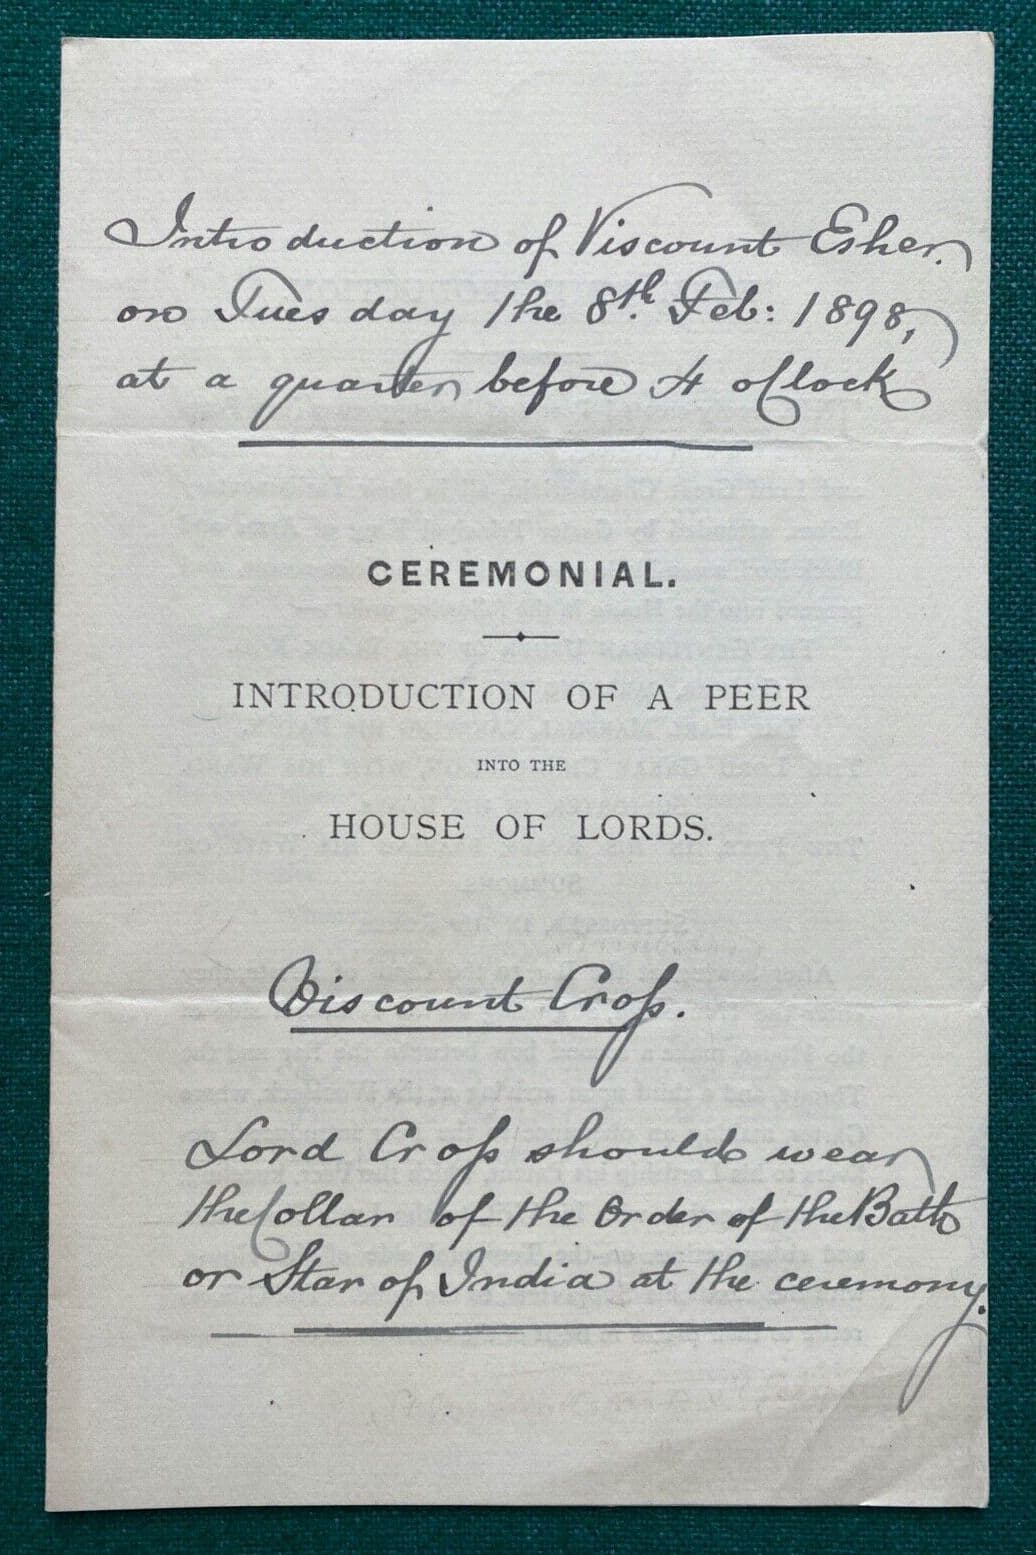 Introduction of Viscount Esher.
on Tuesday the 8th. Feb: 1898,
at a quarter before 4 o'Clock
CEREMONIAL.
INTRODUCTION OF A PEER
INTO THE
HOUSE OF LORDS.
Viscount Croſs.
Lord Croſs should wear
the Collar of the Order of the Bath
or Star of India at the ceremony.